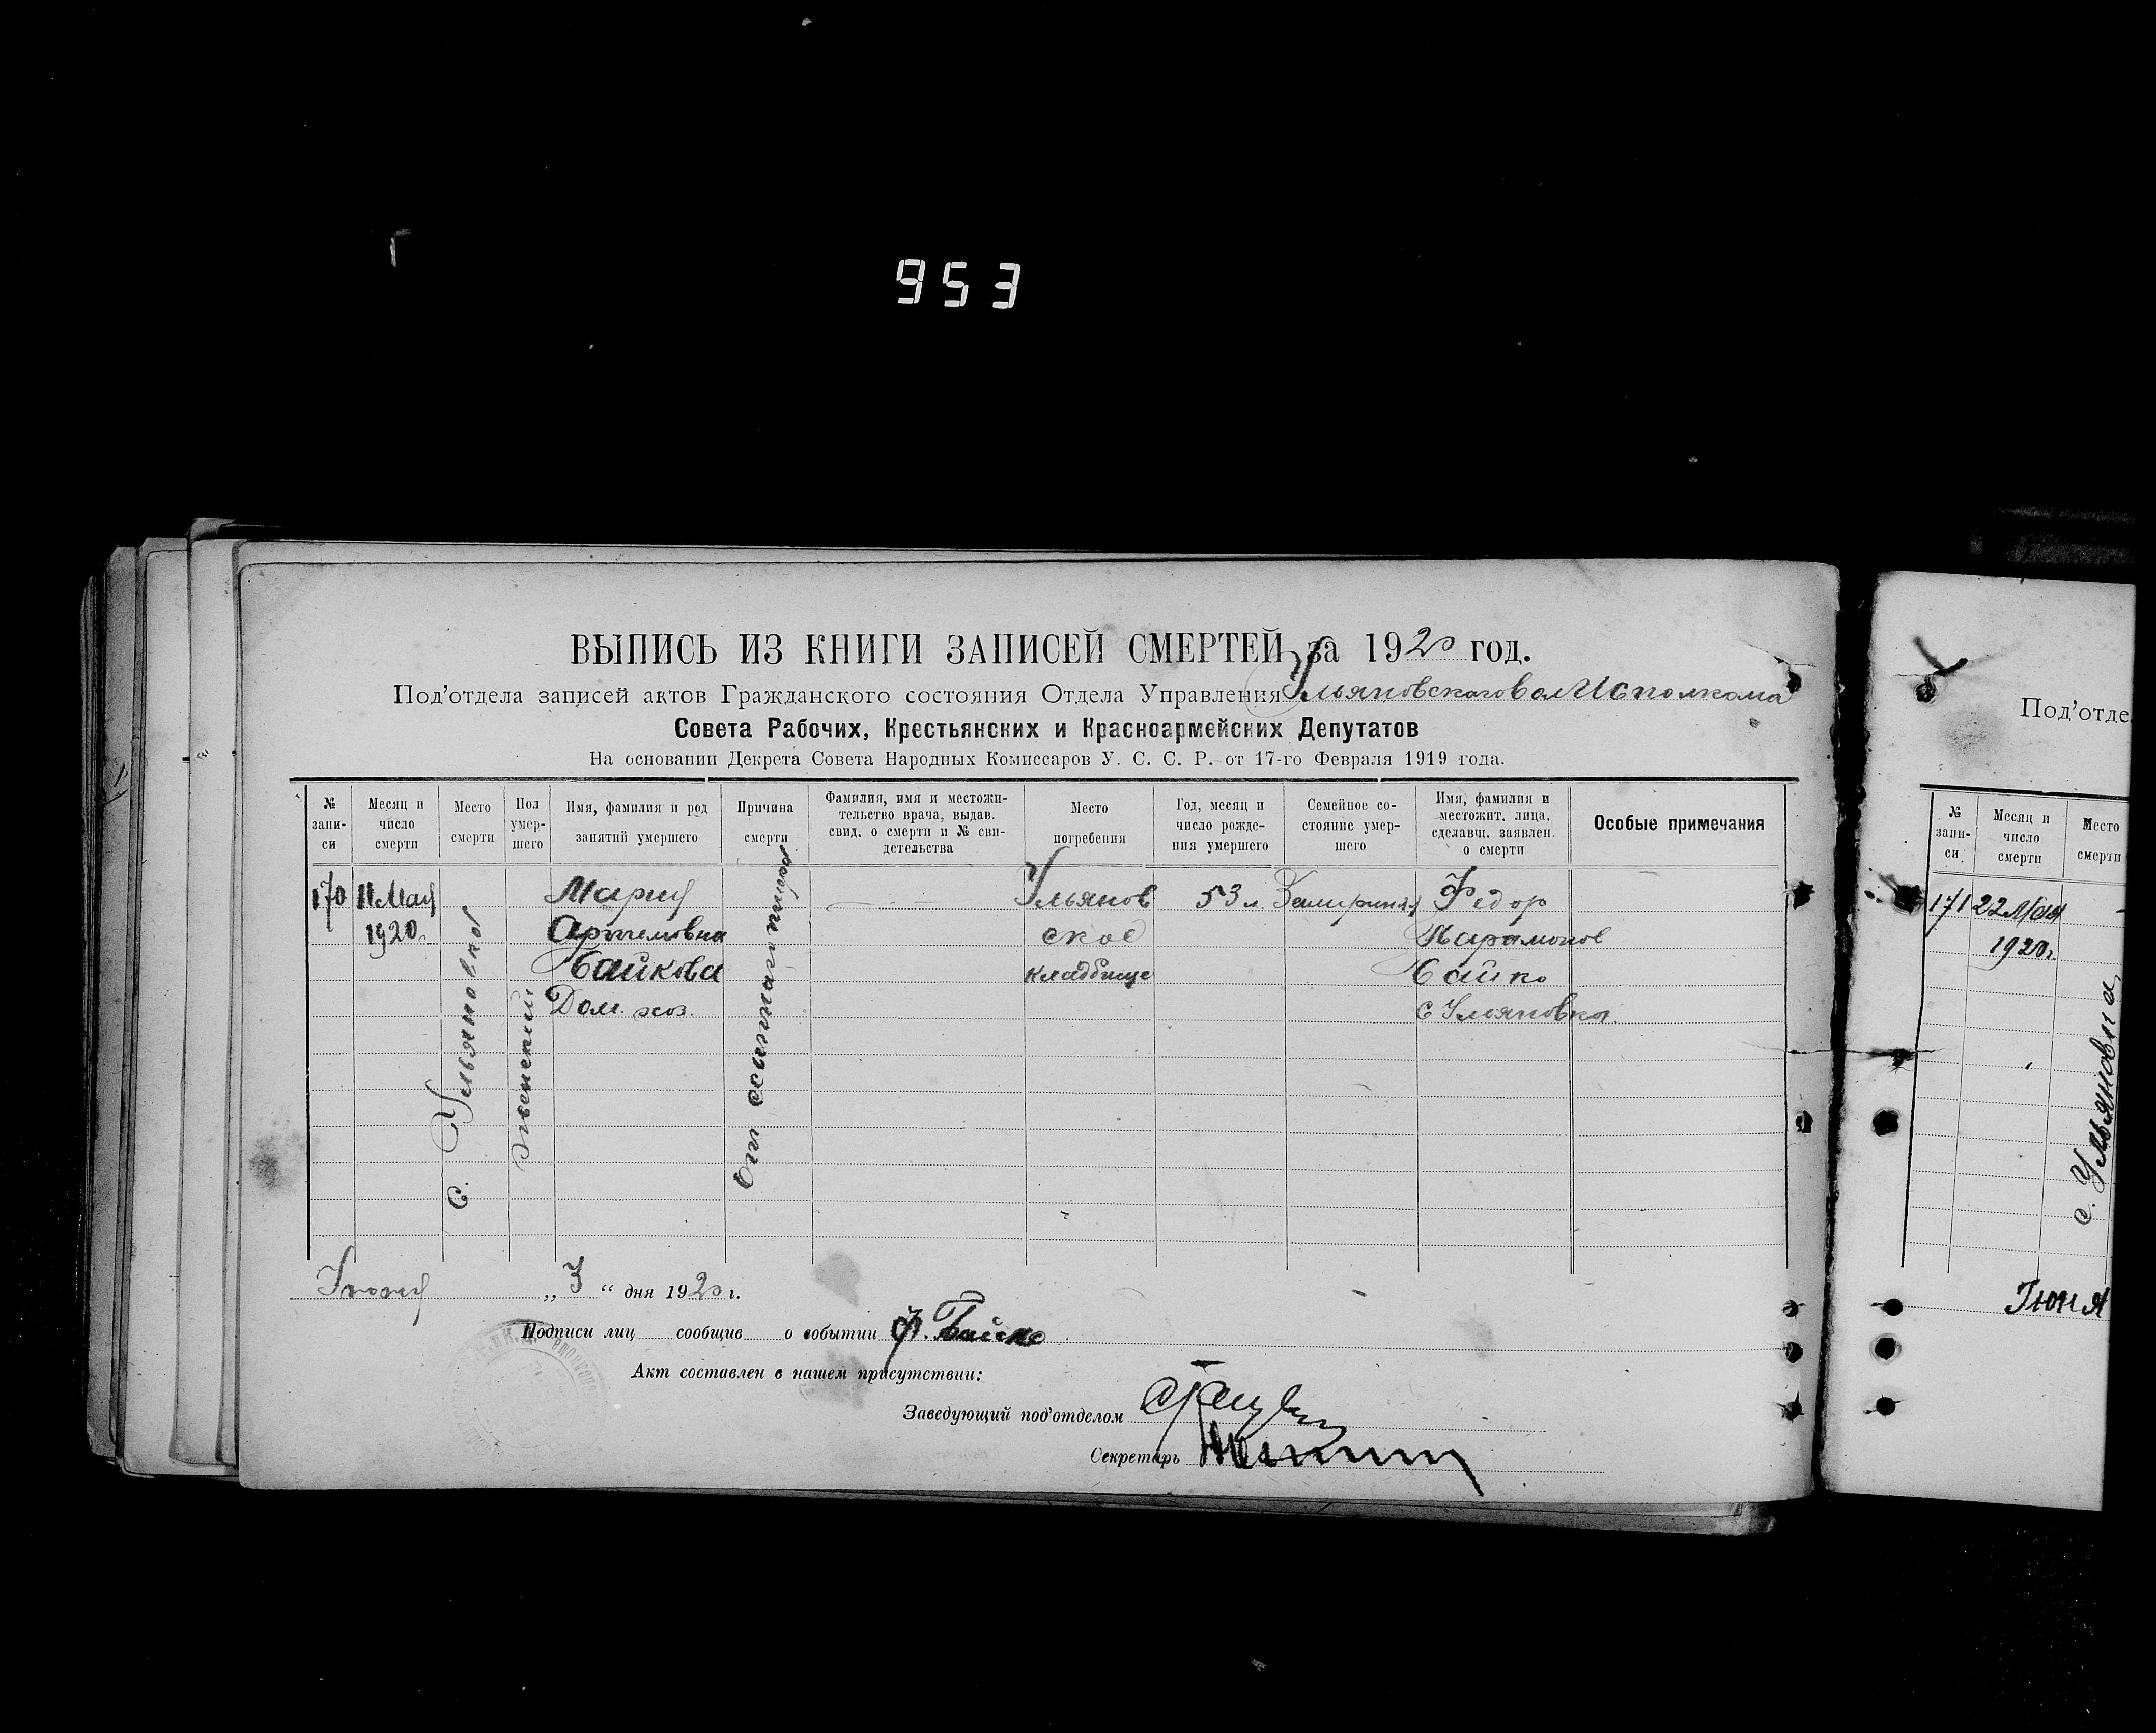 953
ВЫПИСЬ ИЗ КНИГИ ЗАПИСЕЙ СМЕРТЕЙ за 1920 год.
Под'отдела записей актов Гражданского состояния Отдела Управления Ульяновскаго Вол Исполкома
Совета Рабочих, Крестьянских и Красноармейских Депутатов
На основании Декрета Совета Народных Комиссаров У. С. С. Р. от 17-го Февраля 1919 года.
№ запи-си
Месяц и число смерти
Место смерти
Пол умер-шего
Имя, фамилия и род занятий умершего
Причина смерти
Фамилия, имя и местожи-тельство врача, выдав. свид. о смерти и № сви-детельства
Место погребения
Год, месяц и число рожде-ния умершего
Семейное со-стояние умер-шего
Имя, фамилия и местожит. лица, сделавш. заявлен. о смерти
Особые примечания
170
11 Мая
1920.
с. Ульяновка
женский
Мария
Артемовна
Байкова
Дом. хоз.
От
Ульянов
ское
кладбище
53 л.
Федор
Парамонов
Байко
с Ульяновка
Июня „3“ дня 1920 г.
Подписи лиц сообщив о событии Ф. Байко
Акт составлен в нашем присутствии:
Заведующий под'отделом
Секретарь
Под'отде
№ запи-си.
Месяц и число смерти
Место смерти
171
22 Мая
1920.
с. Ульяновка
Июня